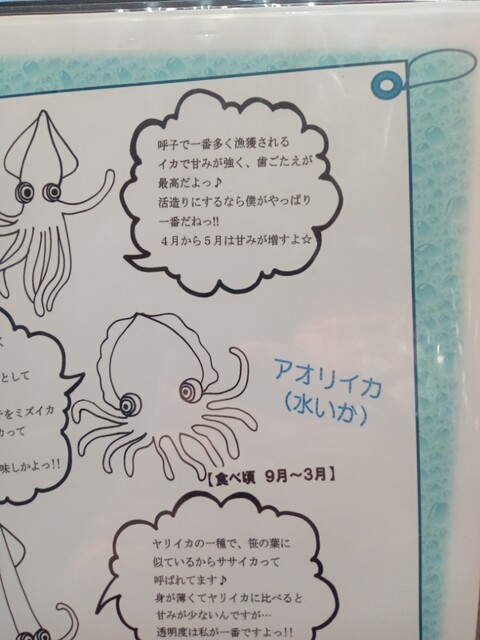 呼子で一番多く漁獲される
イカで甘みが強く、歯ごたえが
最高だよっ♪
活造りにするなら僕がやっぱり
一番だねっ!!
４月から５月は甘みが増すよ☆
として
をミズイカ
って
味しかよっ!!
アオリイカ
（水いか）
【食べ頃 9月～3月】
ヤリイカの一種で、笹の葉に
似ているからササイカって
呼ばれてます♪
身が薄くてヤリイカに比べると
甘みが少ないんですが…
透明度は私が一番ですよっ!!